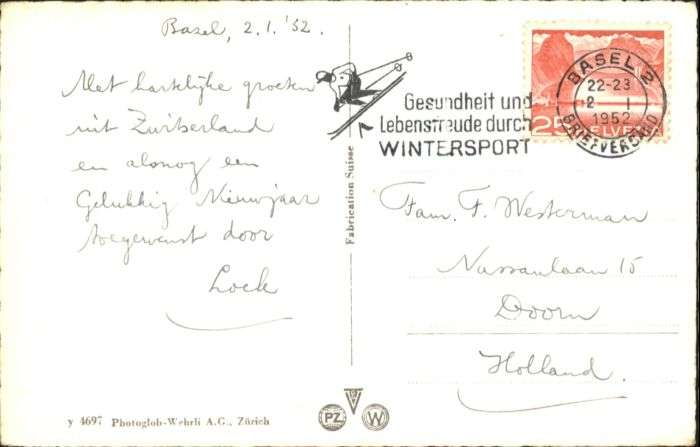 Basel, 2.1.'52.
Met hartelijke groeten
uit Zwitserland
en alsnog een
Gelukkig Nieuwjaar
toegewenst door
Loek
Fabrication Suisse
Gesundheit und
Lebensfreude durch
WINTERSPORT
BASEL 2
22-23
2 I
1952
BRIEFVERSAND
25 HELVETIA
Fam. F. Westerman
Nassaulaan 15
Doorn
Holland.
y 4697 Photoglob-Wehrli A.G., Zürich
PZ
W